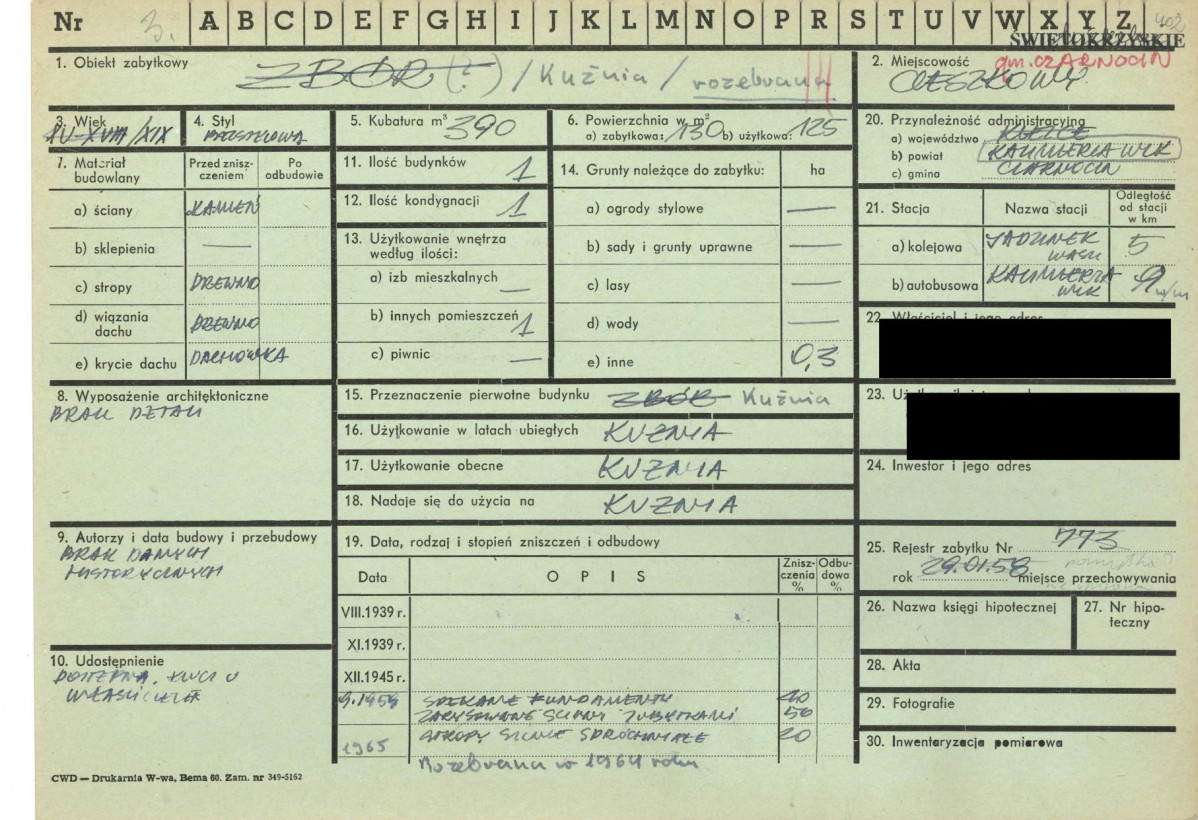 Nr 3. A B C D E F G H I J K L M N O P R S T U V W X Y Z 402
ŚWIĘTOKRZYSKIE
1. Obiekt zabytkowy ZBÓR (?) / Kuźnia / rozebrana
2. Miejscowość gm. CZARNOCIN
CIESZKOWY
3. Wiek XV-XVIII/XIX
4. Styl BEZSTYLOWA
5. Kubatura m³ 390
6. Powierzchnia w m²
a) zabytkowa: 130 b) użytkowa: 125
20. Przynależność administracyjna
a) województwo KIELCE
b) powiat KAZIMIERZA WLK
c) gmina CZARNOCIN
7. Materiał budowlany
Przed zniszczeniem
Po odbudowie
a) ściany KAMIEŃ
b) sklepienia —
c) stropy DREWNO
d) wiązania dachu DREWNO
e) krycie dachu DACHÓWKA
11. Ilość budynków 1
12. Ilość kondygnacji 1
13. Użytkowanie wnętrza według ilości:
a) izb mieszkalnych —
b) innych pomieszczeń 1
c) piwnic —
14. Grunty należące do zabytku: ha
a) ogrody stylowe —
b) sady i grunty uprawne —
c) lasy —
d) wody —
e) inne 0,3
21. Stacja
Nazwa stacji
Odległość od stacji w km
a) kolejowa 5
b) autobusowa KAZIMIERZA WLK 9
22. Właściciel i jego adres
23.
24. Inwestor i jego adres
8. Wyposażenie architektoniczne
BRAK DETALI
15. Przeznaczenie pierwotne budynku ZBÓR Kuźnia
16. Użytkowanie w latach ubiegłych KUZNIA
17. Użytkowanie obecne KUZNIA
18. Nadaje się do użycia na KUZNIA
9. Autorzy i data budowy i przebudowy
BRAK DANYCH
HISTORYCZNYCH
19. Data, rodzaj i stopień zniszczeń i odbudowy
Data
OPIS
Zniszczenia %
Odbudowa %
VIII.1939 r.
XI.1939 r.
XII.1945 r.
9.1959 SPĘKANE FUNDAMENTY 40
ZARYSOWANE ŚCIANY Z UBYTKAMI 50
STROPY SILNIE SPRÓCHNIAŁE 20
1965
Rozebrana w 1964 roku
25. Rejestr zabytku Nr 773
rok 29.01.58 miejsce przechowywania
26. Nazwa księgi hipotecznej
27. Nr hipoteczny
28. Akta
29. Fotografie
30. Inwentaryzacja pomiarowa
10. Udostępnienie
DOSTĘPNA. KLUCZ U
WŁAŚCICIELA
CWD — Drukarnia W-wa, Bema 60. Zam. nr 349-5162